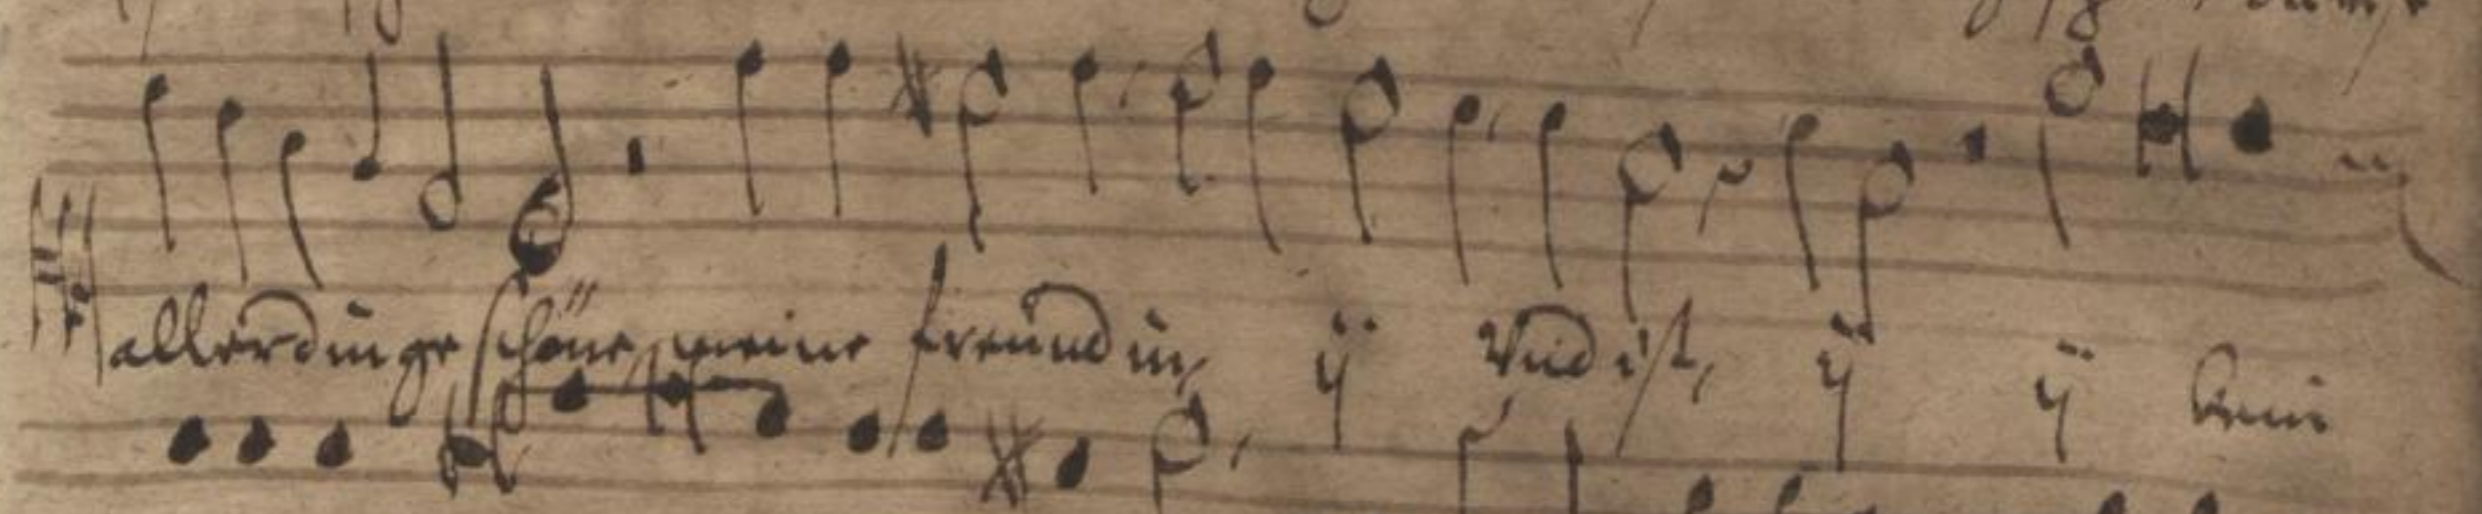 allerdinge schöne, meine freundin, ij Vnd ist, ij ij kein